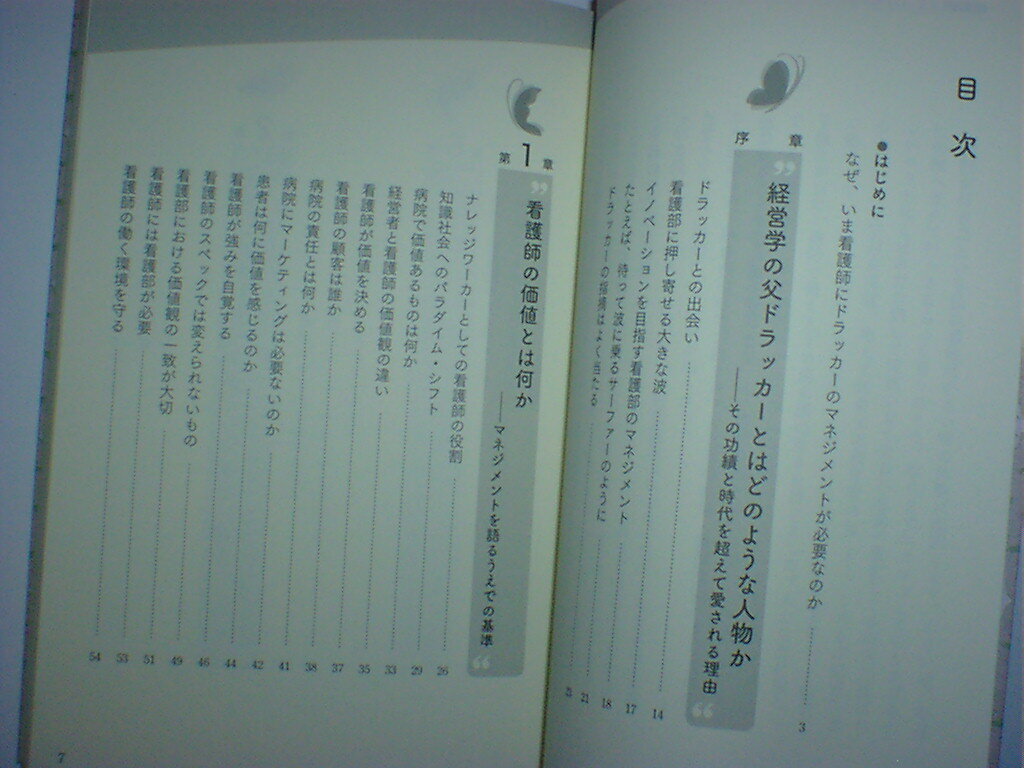 目次
●はじめに
なぜ、いま看護師にドラッカーのマネジメントが必要なのか 3
序章
経営学の父ドラッカーとはどのような人物か
——その功績と時代を超えて愛される理由
ドラッカーとの出会い 14
看護部に押し寄せる大きな波 17
イノベーションを目指す看護部のマネジメント 18
たとえば、待って波に乗るサーファーのように 21
ドラッカーの指摘はよく当たる
第1章
看護師の価値とは何か
——マネジメントを語るうえでの基準
ナレッジワーカーとしての看護師の役割 26
知識社会へのパラダイム・シフト 29
病院で価値あるものは何か 33
経営者と看護師の価値観の違い 35
看護師が価値を決める 37
看護師の顧客は誰か 38
病院の責任とは何か 41
病院にマーケティングは必要ないのか 42
患者は何に価値を感じるのか 44
看護師が強みを自覚する 46
看護師のスペックでは変えられないもの 49
看護部における価値観の一致が大切 51
看護師には看護部が必要 53
看護師の働く環境を守る 54
7